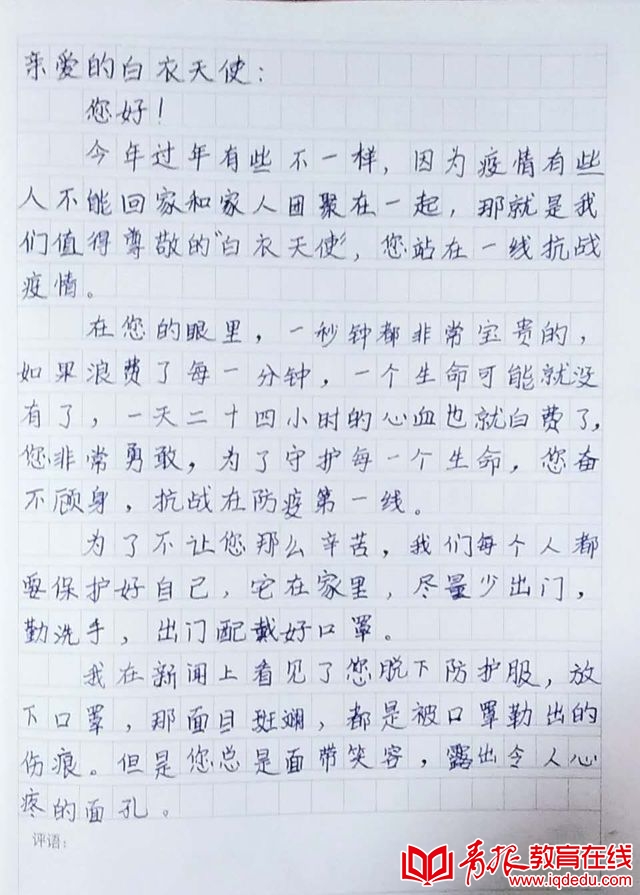 亲爱的白衣天使：
您好！
今年过年有些不一样，因为疫情有些
人不能回家和家人团聚在一起，那就是我
们值得尊敬的“白衣天使”，您站在一线抗战
疫情。
在您的眼里，一秒钟都非常宝贵的，
如果浪费了每一分钟，一个生命可能就没
有了，一天二十四小时的心血也就白费了，
您非常勇敢，为了守护每一个生命，您奋
不顾身，抗战在防疫第一线。
为了不让您那么辛苦，我们每个人都
要保护好自己，宅在家里，尽量少出门，
勤洗手，出门配戴好口罩。
我在新闻上看见了您脱下防护服，放
下口罩，那面目斑斓，都是被口罩勒出的
伤痕。但是您总是面带笑容，露出令人心
疼的面孔。
评语：
青报教育在线
www.iqdedu.com